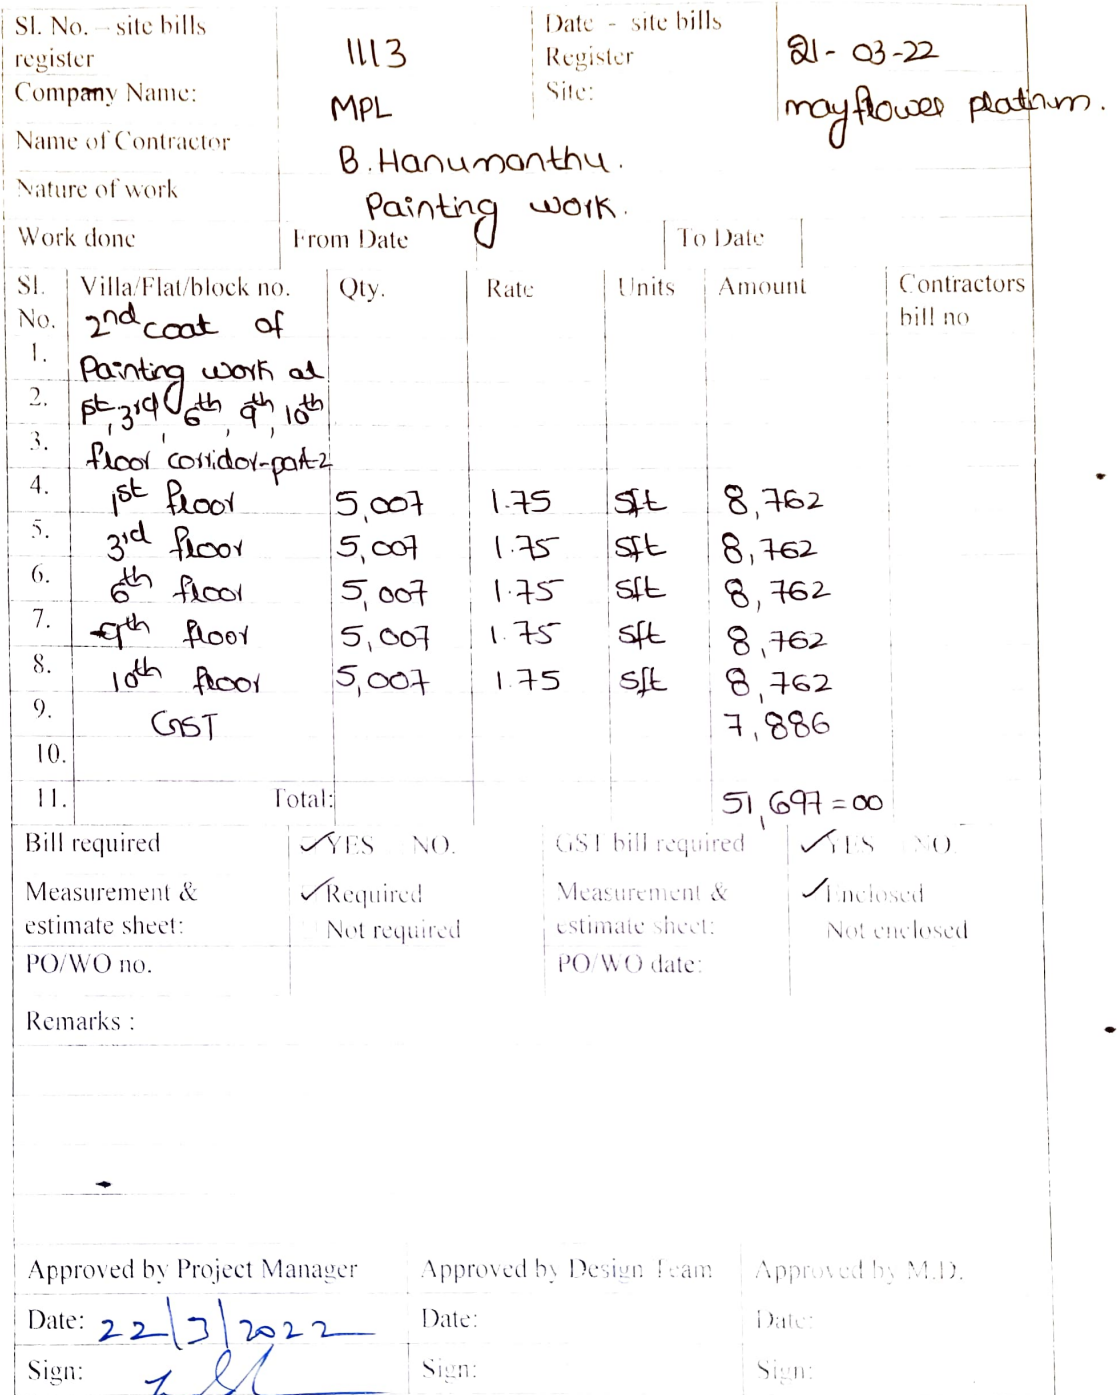 Sl. No. – site bills register 1113 Date - site bills Register 21-03-22
Company Name: MPL Site: mayflower platinum.
Name of Contractor B. Hanumanthu.
Nature of work Painting work.
Work done From Date To Date
Sl. No. Villa/Flat/block no. Qty. Rate Units Amount Contractors bill no
2nd coat of
1. Painting work at
2. 1st, 3rd, 6th, 9th, 10th
3. floor corridor-part-2
4. 1st floor 5,007 1.75 sft 8,762
5. 3rd floor 5,007 1.75 sft 8,762
6. 6th floor 5,007 1.75 sft 8,762
7. 9th floor 5,007 1.75 sft 8,762
8. 10th floor 5,007 1.75 sft 8,762
9. GST 7,886
10.
11. Total: 51,697=00
Bill required ✓YES NO. GST bill required ✓YES NO.
Measurement & estimate sheet: ✓Required Not required Measurement & estimate sheet: ✓Enclosed Not enclosed
PO/WO no. PO/WO date:
Remarks :
Approved by Project Manager Approved by Design Team Approved by M.D.
Date: 22/3/2022 Date: Date:
Sign: Sign: Sign: